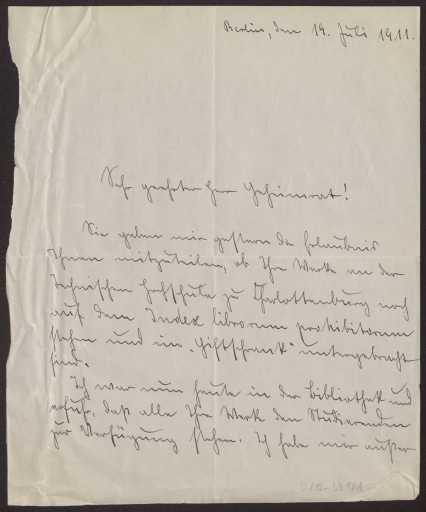 Berlin, den 19. Juli 1911.
Sehr geehrter Herr Geheimrat!
Sie gaben mir gestern die Erlaubnis
Ihnen mitzuteilen, ob Ihre Werke an der
Technischen Hochschule zu Charlottenburg noch
auf dem Index librorum prohibitorum
stehen und im „Giftschrank“ untergebracht
sind.
Ich war nun heute in der Bibliothek und
erfuhr, daß alle Ihre Werke den Studierenden
zur Verfügung stehen. Ich habe mir außer-